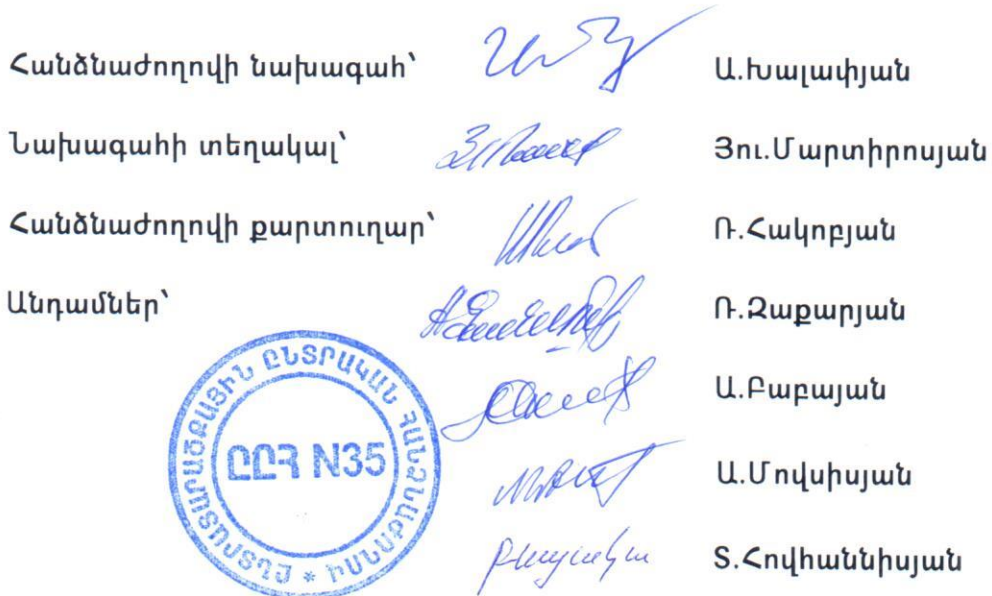 Հանձնաժողովի նախագահ՝ Ա.Խալափյան
Նախագահի տեղակալ՝ Յու.Մարտիրոսյան
Հանձնաժողովի քարտուղար՝ Ռ.Հակոբյան
Անդամներ՝ Ռ.Զաքարյան
Ա.Բաբայան
Ա.Մովսիսյան
Տ.Հովհաննիսյան
ԸԸՀ N35
ԸՆՏՐԱԿԱՆ